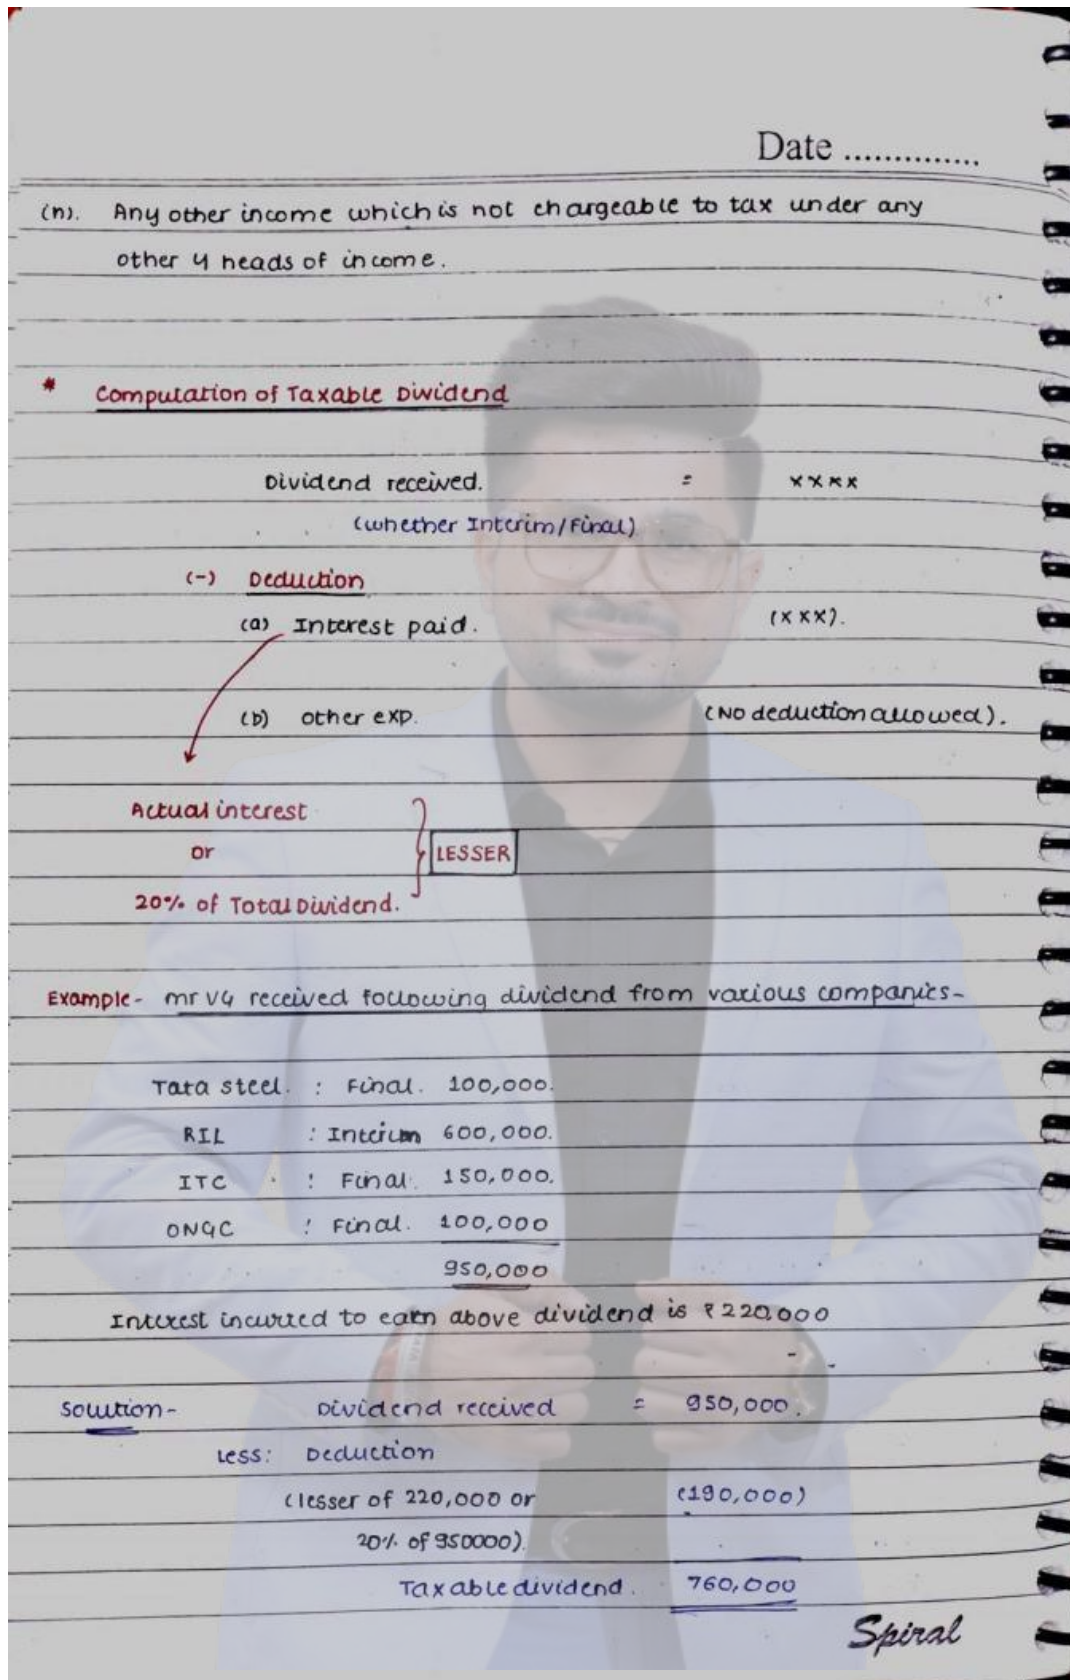 Date ..............
(n). Any other income which is not chargeable to tax under any
other 4 heads of income.
* Computation of Taxable Dividend
Dividend received. = xxxx
(whether Interim/Final)
(-) Deduction
(a) Interest paid. (xxx).
(b) other exp. (No deduction allowed).
Actual interest
or
LESSER
20% of Total Dividend.
Example - mr VG received following dividend from various companies-
Tata steel. : Final. 100,000.
RIL : Interim 600,000.
ITC : Final. 150,000.
ONGC : Final. 100,000
950,000
Interest incurred to earn above dividend is ₹220,000
Solution- Dividend received = 950,000.
Less: Deduction
(lesser of 220,000 or (190,000)
20% of 950000)
Taxable dividend. 760,000
Spiral